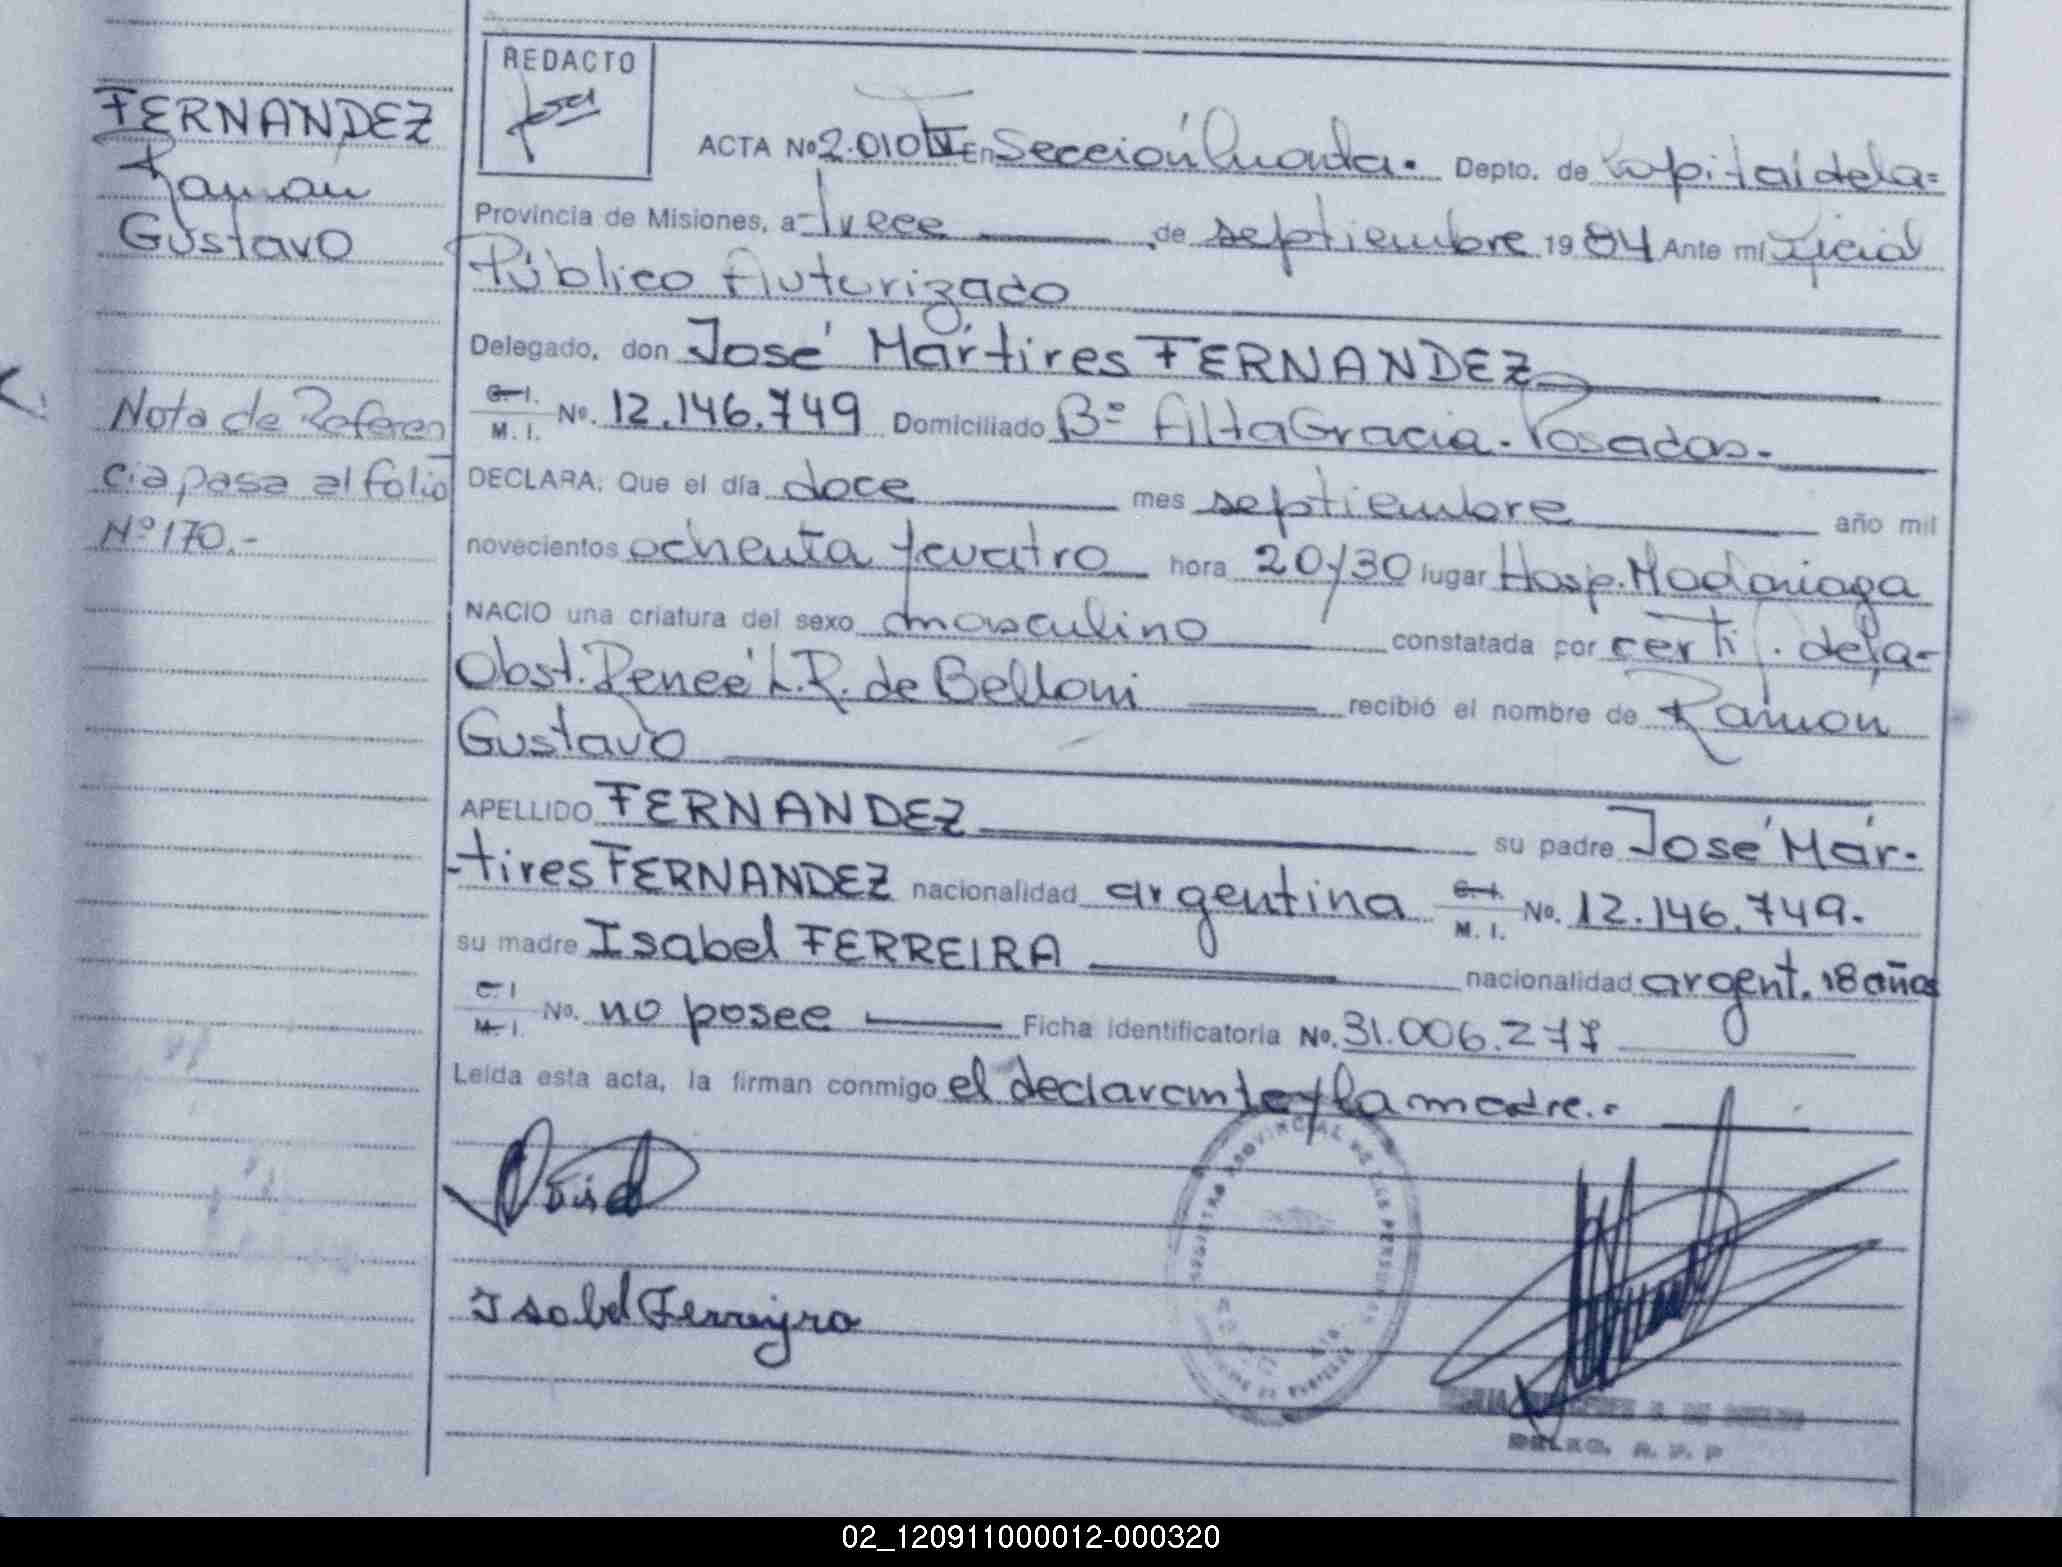 REDACTO
FERNANDEZ
Ramon
Gustavo
Nota de Referen
cia pasa al folio
Nº 170.-
ACTA Nº 2.010 IV En Sección Cuarta. Depto. de Capital de la=
Provincia de Misiones, a trece de septiembre 1984 Ante mí Oficial
Público Autorizado
Delegado, don José Mártires FERNANDEZ
C. I.
M. I. Nº. 12.146.749 Domiciliado Bº AltaGracia-Posadas.-
DECLARA: Que el día doce mes septiembre año mil
novecientos ochenta y cuatro hora 20/30 lugar Hosp. Madariaga
NACIO una criatura del sexo masculino constatada por certif. de la-
Obst. Reneé L.R. de Belloni recibió el nombre de Ramón
Gustavo
APELLIDO FERNANDEZ su padre José Már-
-tires FERNANDEZ nacionalidad argentina C. I.
M. I. Nº. 12.146.749.
su madre Isabel FERREIRA nacionalidad argent. 18 años
C. I
M. I. Nº. no posee Ficha identificatoria Nº. 31.006.277
Leída esta acta, la firman conmigo el declarante y la madre.-
REGISTRO PROVINCIAL DE LAS PERSONAS
Isabel Ferreyra
02_120911000012-000320